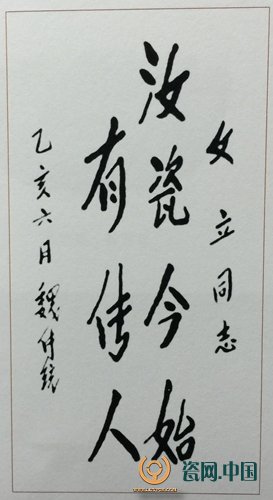 文立同志
汝瓷今始
有传人
乙亥六月魏传统
瓷网.中国